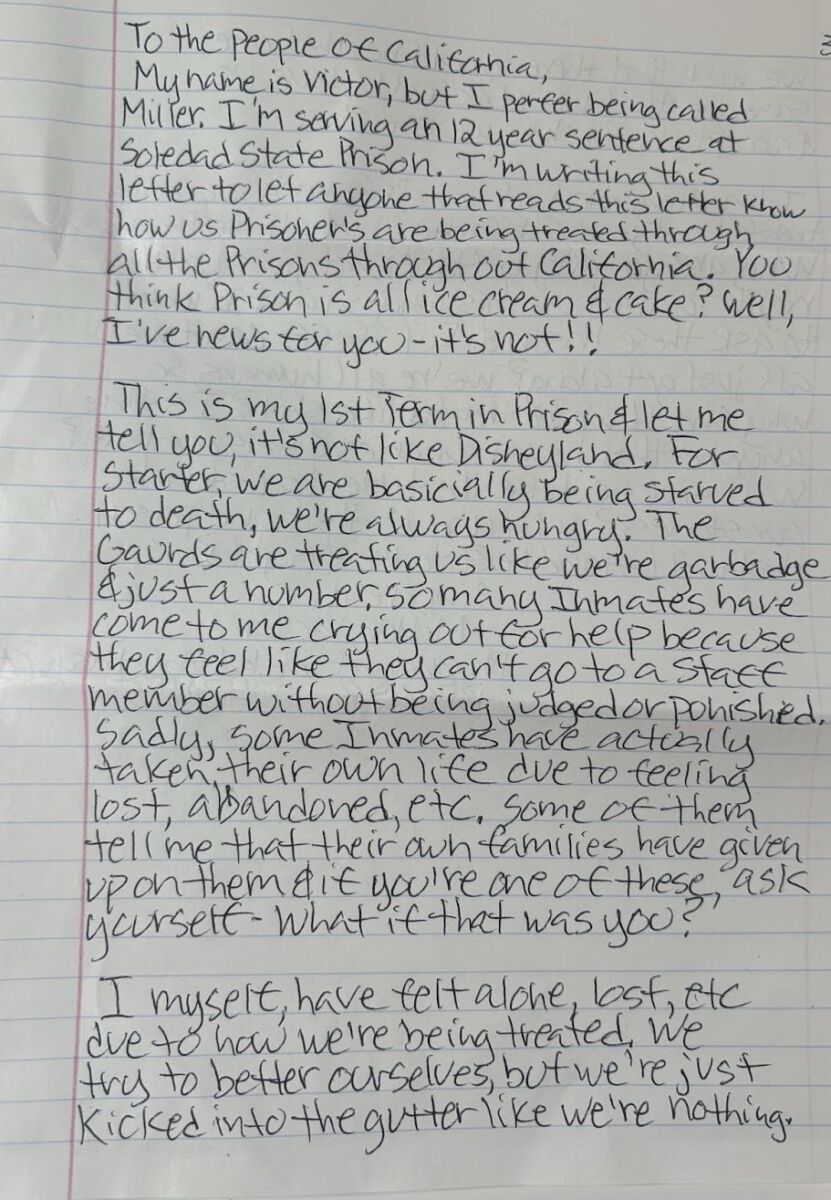 To the People of California,
My name is Victor, but I perfer being called
Miller. I'm serving an 12 year sentence at
Soledad State Prison. I'm writing this
letter to let anyone that reads this letter know
how us Prisoner's are being treated through
all the Prisons through out California. You
think Prison is all ice cream & cake? Well,
I've news for you - it's not!!
This is my 1st Term in Prison & let me
tell you, it's not like Disneyland. For
starter, we are basicially being starved
to death, we're always hungry. The
Gaurds are treating us like we're garbadge
& just a number, so many Inmates have
come to me crying out for help because
they feel like they can't go to a staff
member without being judged or ponished.
Sadly, some Inmates have actually
taken their own life due to feeling
lost, abandoned, etc. some of them
tell me that their own families have given
up on them & if you're one of these, ask
yourself - what if that was you?
I myself, have felt alone, lost, etc
due to how we're being treated. We
try to better ourselves, but we're just
kicked into the gutter like we're nothing.